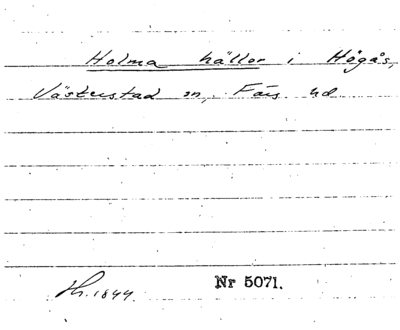 Holma hällor i Högås,
Västerstad sn, Färs hd
Hr. 1844. Nr 5071.